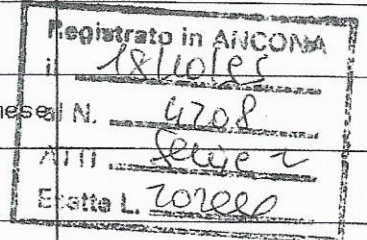 Registrato in ANCONA
il 18/10/95
nese al N. 4708
ATTI Serie 2
Esatte L.